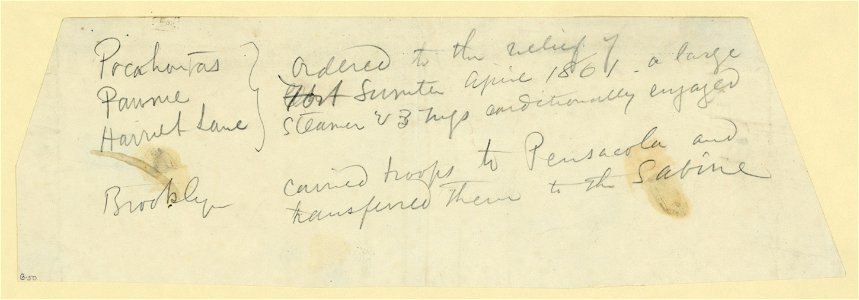 Pocahontas } ordered to the relief of
Pawnee } Fort Sumter April 1861 - a large
Harriet Lane } steamer & 3 tugs conditionally engaged
Brooklyn carried troops to Pensacola and
transferred them to the Sabine
B-50